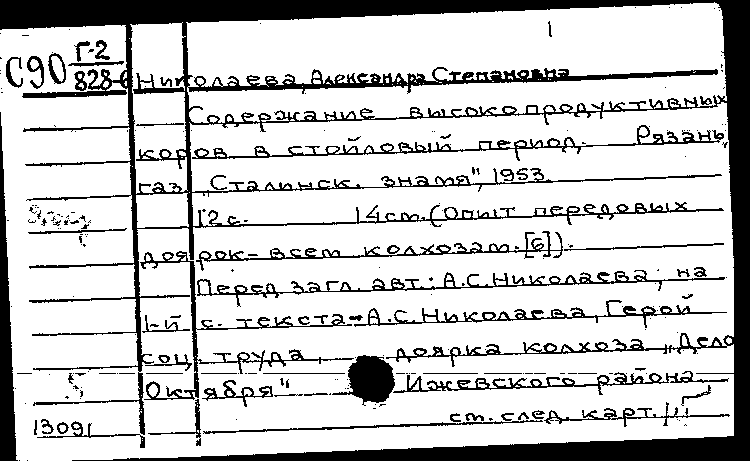 1
С90 Г-2
828-6 Николаева, Александра Степановна
Содержание высокопродуктивных
коров в стойловый период. Рязань,
газ. „Сталинск. знамя", 1953.
12 с. 14 см. (Опыт передовых
доярок - всем колхозам. [6]).
Перед загл. авт.: А.С. Николаева; на
1-й с. текста - А.С. Николаева, Герой
соц. труда, доярка колхоза „Дело
Октября" Ижевского района
5
13091 см. след. карт.